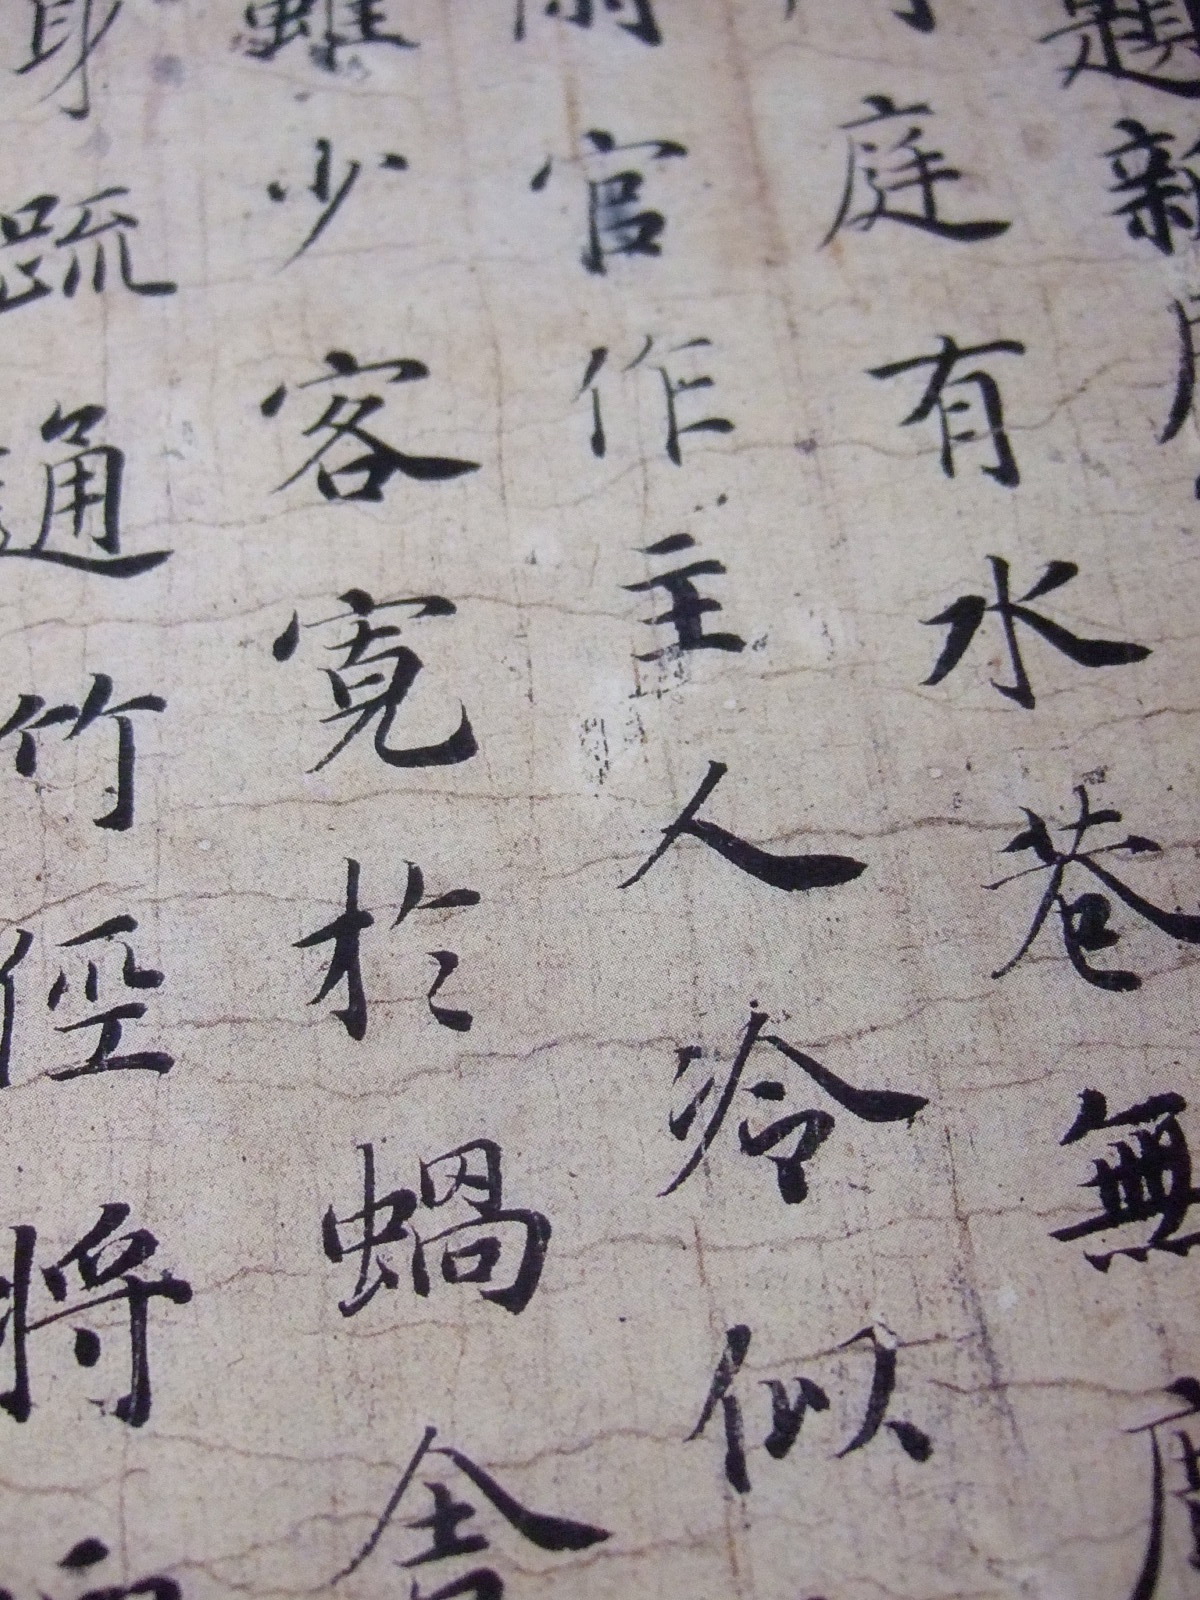 題新
庭有水巷無
官作主人冷似
雖少客寬於蝸舍
身䟽通竹俓將